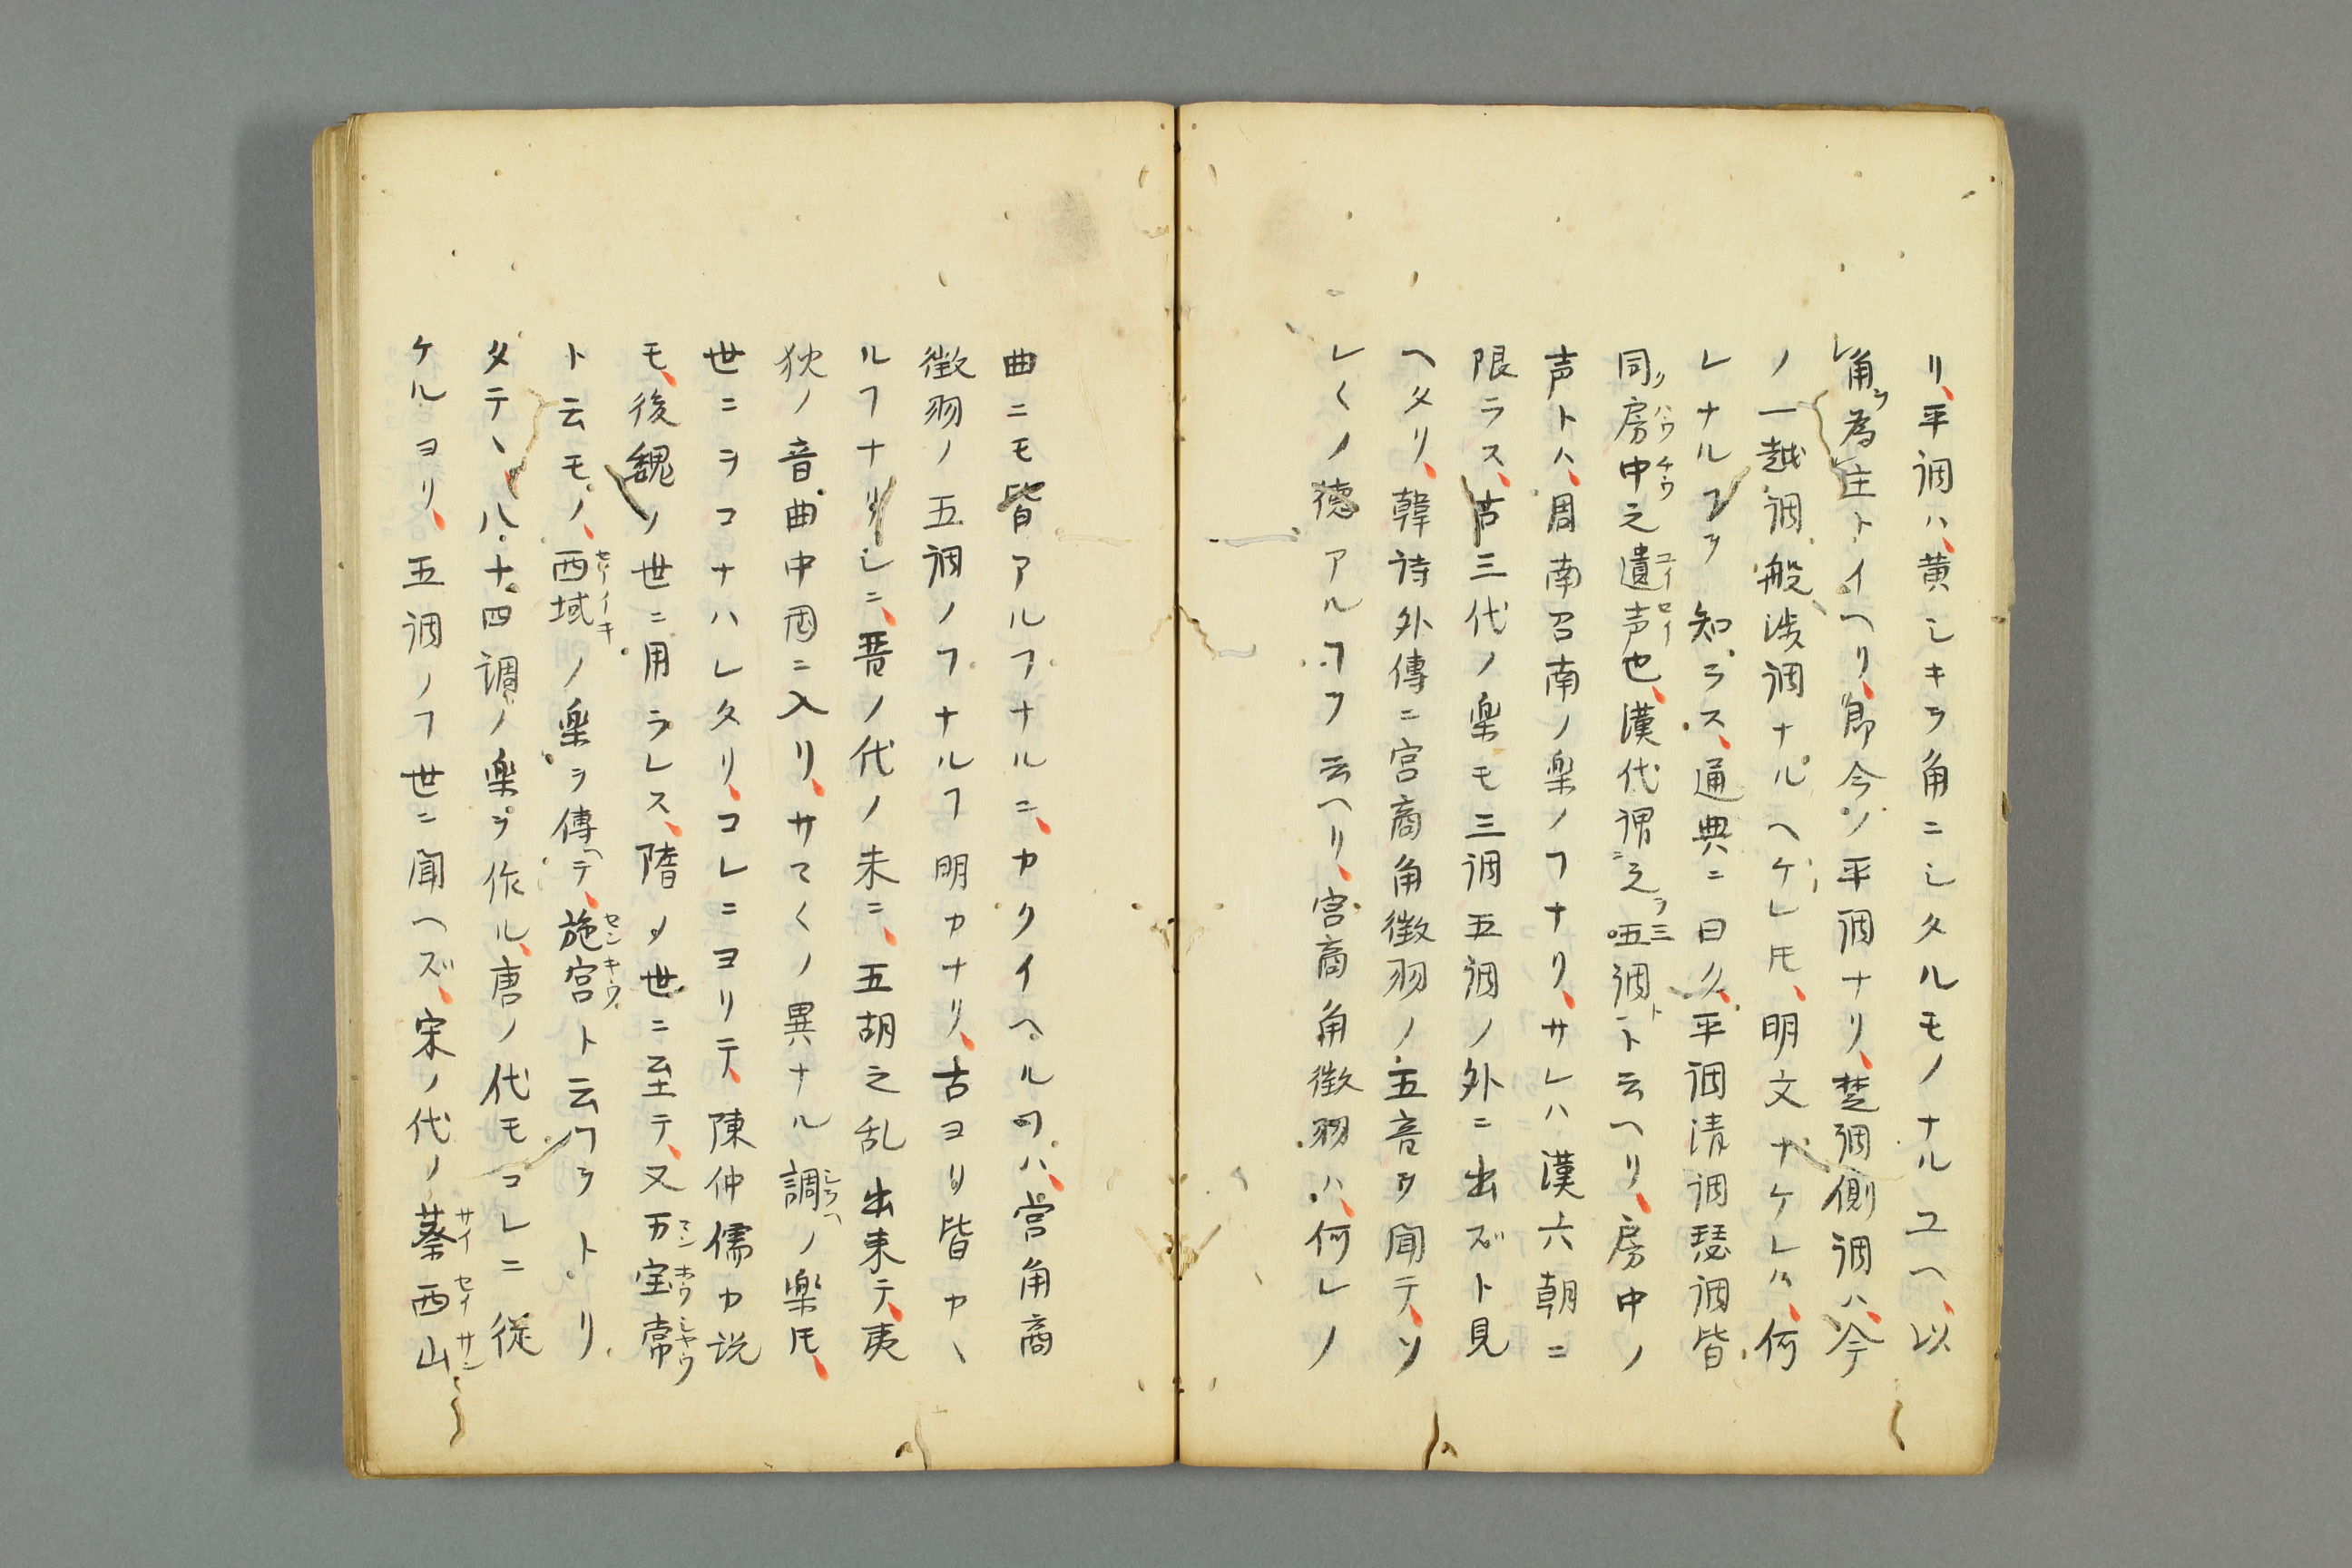 リ、平調ハ、黄シキヲ角ニシタルモノナルユヘ、以
レ角ヲ為主トイヘリ、即今ノ平調ナリ、楚調側調ハ、今
ノ一越調般渉調ナルヘケレ𪜈、明文ナケレハ、何
レナルヿヲ知ラス、通典ニ曰ク、平調清調瑟調皆
同ノ房中之遺声也、漢代謂之ヲ三調ト云ヘリ、房中ノ
声トハ、周南召南ノ楽ノヿナリ、サレハ漢六朝ニ
限ラス、古三代ノ楽モ三調五調ノ外ニ出ズト見
ヘタリ、韓詩外傳ニ宮商角徴羽ノ五音ヲ聞テ、ソ
レ〱ノ徳アルヿヲ云ヘリ、宮商角徴羽ハ、何レノ
曲ニモ皆アルヿナルニ、カクイヘルハ、宮角商
徴羽ノ五調ノヿナルヿ明カナリ、古ヨリ皆カヽ
ルヿナリシニ、晋ノ代ノ末ニ、五胡之乱出来テ、夷
狄ノ音曲中国ニ入リ、サマ〱ノ異ナル調ノ楽𪜈、
世ニヲコナハレタリ、コレニヨリテ、陳仲儒カ説
モ、後魏ノ世ニ用ラレス、隋ノ世ニ至テ、又万宝常
ト云モノ、西域ノ楽ヲ傳ヘテ、旋宮ト云ヿヲトリ
タテヽ、八十四調ノ楽ヲ作ル、唐ノ代モコレニ従
ケルヨリ、五調ノヿ世ニ聞ヘズ、宋ノ代ノ蔡西山